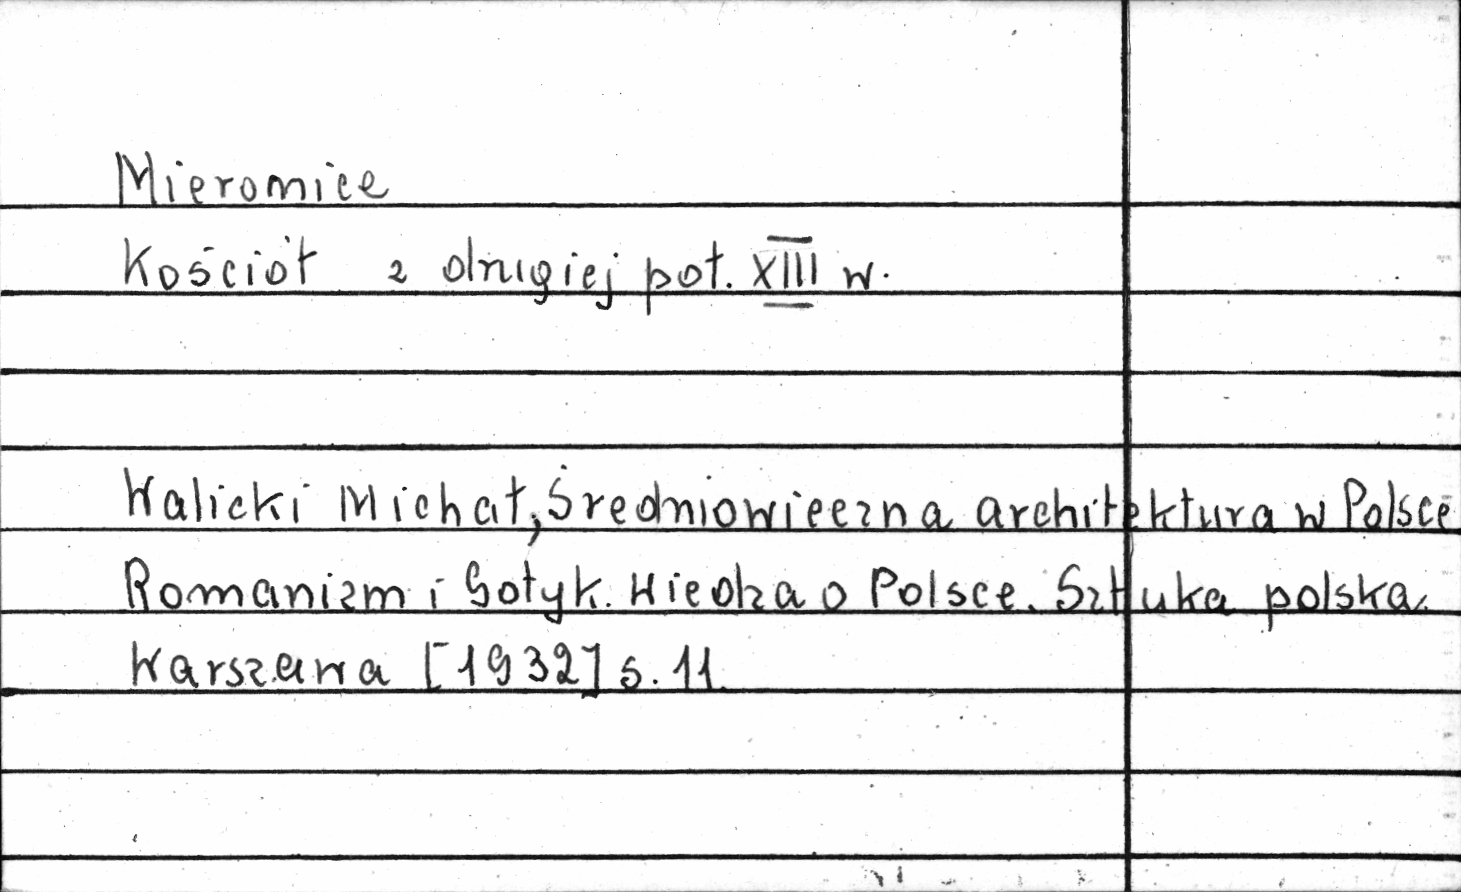 Mieromice
Kościół z drugiej poł. XIII w.
Walicki Michał, Średniowieczna architektura w Polsce
Romanizm i Gotyk. Wiedza o Polsce. Sztuka polska.
Warszawa [1932] s. 11.